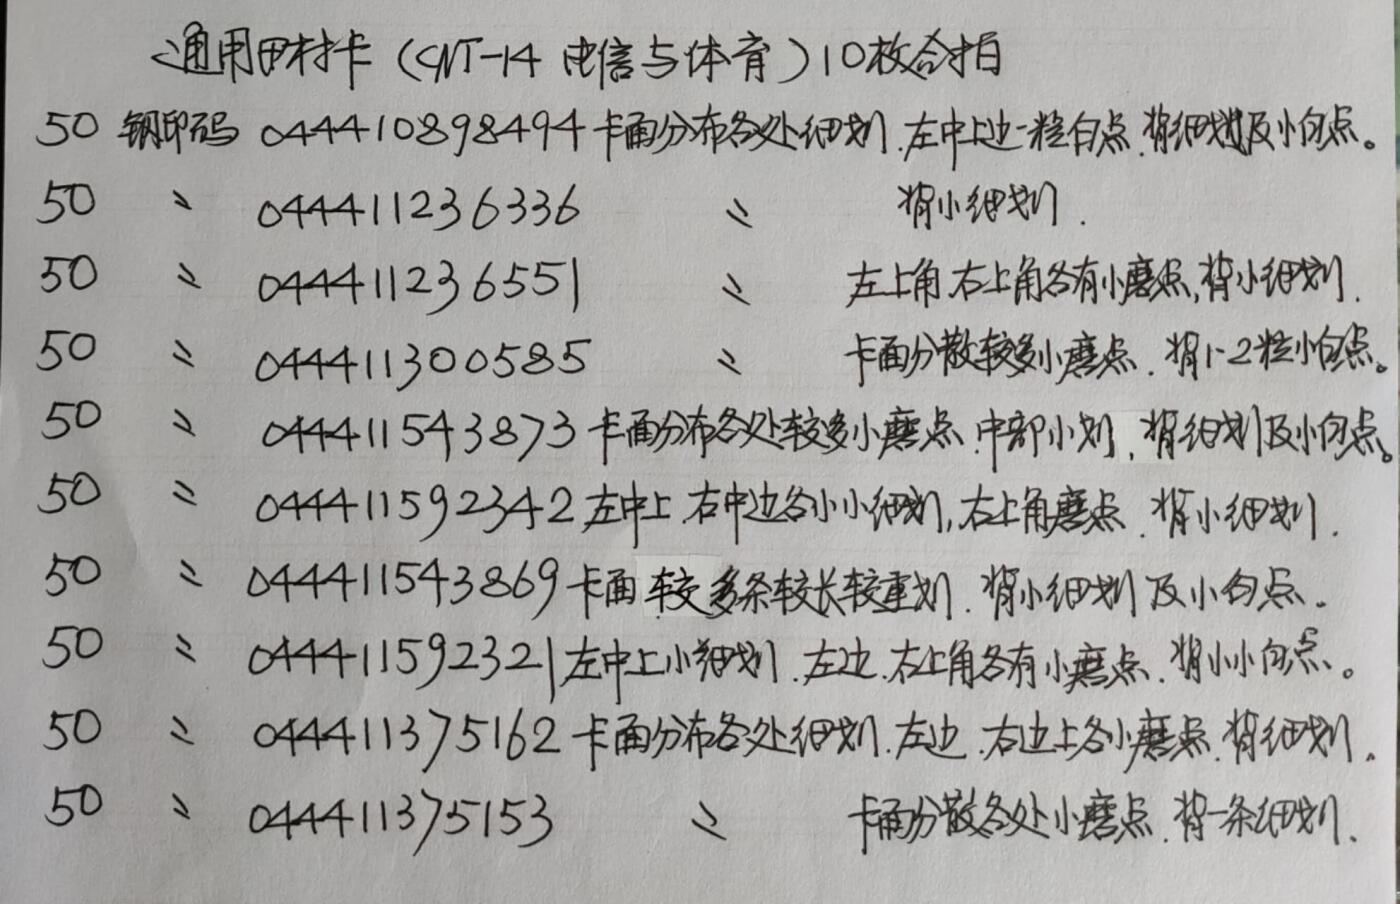 通用田村卡（CNT-14 电信与体育）10枚合拍
50 钢印码 044410898494 卡面分布各处细划.左中上边一粒白点.背细划及小白点。
50 〃 044411236336 〃 背小细划.
50 〃 044411236551 〃 左上角.右上角各有小磨点,背小细划.
50 〃 044411300585 〃 卡面分散较多小磨点.背1-2粒小白点。
50 〃 044411543873 卡面分布各处较多小磨点.中部小划,背细划及小白点。
50 〃 044411592342 左中上.右中边各小小细划,右上角磨点.背小细划.
50 〃 044411543869 卡面较多条较长较重划.背小细划及小白点.
50 〃 044411592321 左中上小细划.左边.右上角各有小磨点.背小小白点。
50 〃 044411375162 卡面分布各处细划.左边.右边上各小磨点.背细划.
50 〃 044411375153 〃 卡面分散各处小磨点.背一条细划.